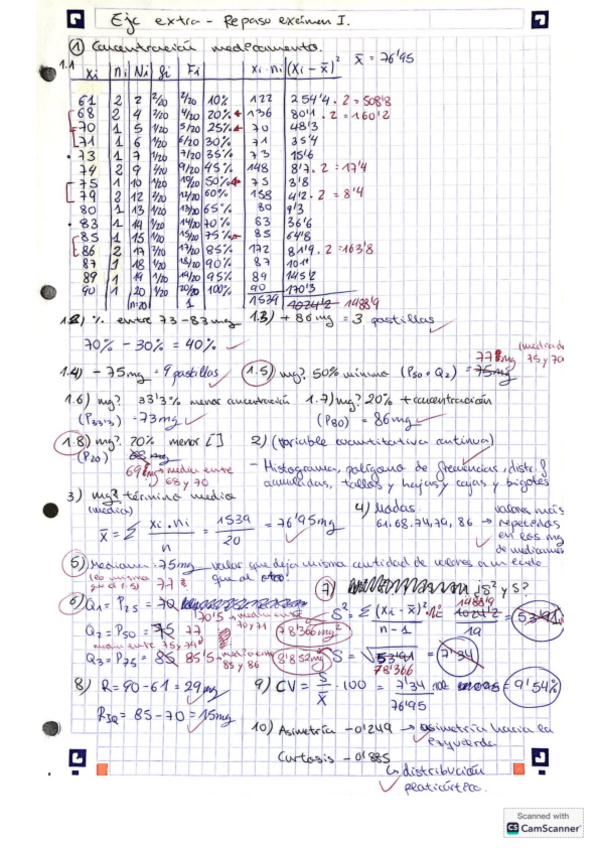 Ejc extra - Repaso examen I.
① Concentración medicamentos. x̄ = 76'95
1.1
xi | ni | Ni | fi | Fi | | xi·ni | (xi - x̄)²
61 2 2 2/20 2/20 10% 122 254'4 · 2 = 508'8
68 2 4 2/20 4/20 20% 136 80'1 · 2 = 160'2
70 1 5 1/20 5/20 25% 70 48'3
71 1 6 1/20 6/20 30% 71 35'4
73 1 7 1/20 7/20 35% 73 15'6
74 2 9 2/20 9/20 45% 148 8'7 · 2 = 17'4
75 1 10 1/20 10/20 50% 75 3'8
79 2 12 2/20 12/20 60% 158 4'2 · 2 = 8'4
80 1 13 1/20 13/20 65% 80 9'3
83 1 14 1/20 14/20 70% 83 36'6
85 1 15 1/20 15/20 75% 85 64'8
86 2 17 2/20 17/20 85% 172 81'9 · 2 = 163'8
87 1 18 1/20 18/20 90% 87 101'1
89 1 19 1/20 19/20 95% 89 145'2
90 1 20 1/20 20/20 100% 90 170'3
n=20 1 1539 1024'2 1488'9
1.2) % entre 73-83mg 1.3) + 86mg = 3 pastillas
70% - 30% = 40%
1.4) - 75mg = 9 pastillas 1.5) mg? 50% mínimo (P50 o Q2) = 75mg
77mg
1.6) mg? 33'3% menor concentración 1.7) mg? 20% + concentración
(P33'3) - 73mg (P80) = 86mg
1.8) mg? 20% menor [ ] 2) (variable cuantitativa continua)
(P20)
69mg → media entre 68 y 70
- Histograma, polígono de frecuencias, distr. f acumuladas, tallos y hojas y cajas y bigotes
3) mg? término medio
(media)
x̄ = Σ xi · ni / n = 1539 / 20 = 76'95mg
4) Modas
61, 68, 74, 79, 86 → valores más repetidos en los mg de medicamen
5) Mediana = 75mg - valor que deja misma cantidad de valores a un lado que al otro.
77
6) Q1 = P25 = 70
70'5 → media entre 70 y 71
Q2 = P50 = 75 77
media entre 75 y 79
Q3 = P75 = 85 85'5 → media entre 85 y 86
7) ¿S² y S?
S² = Σ (xi - x̄)² · ni / n - 1 = 1024'2 / 19 = 53'91
1488'9
78'366mg²
S = √53'91 = 7'34
78'366
8'852mg
8) R = 90 - 61 = 29mg
RIQ = 85 - 70 = 15mg
9) CV = S / x̄ · 100 = 7'34 / 76'95 · 100 = 9'54%
10) Asimetría - 0'249 → asimetría hacia la izquierda
Curtosis - 0'885
↳ distribución platicúrtica.
Scanned with
CS CamScanner